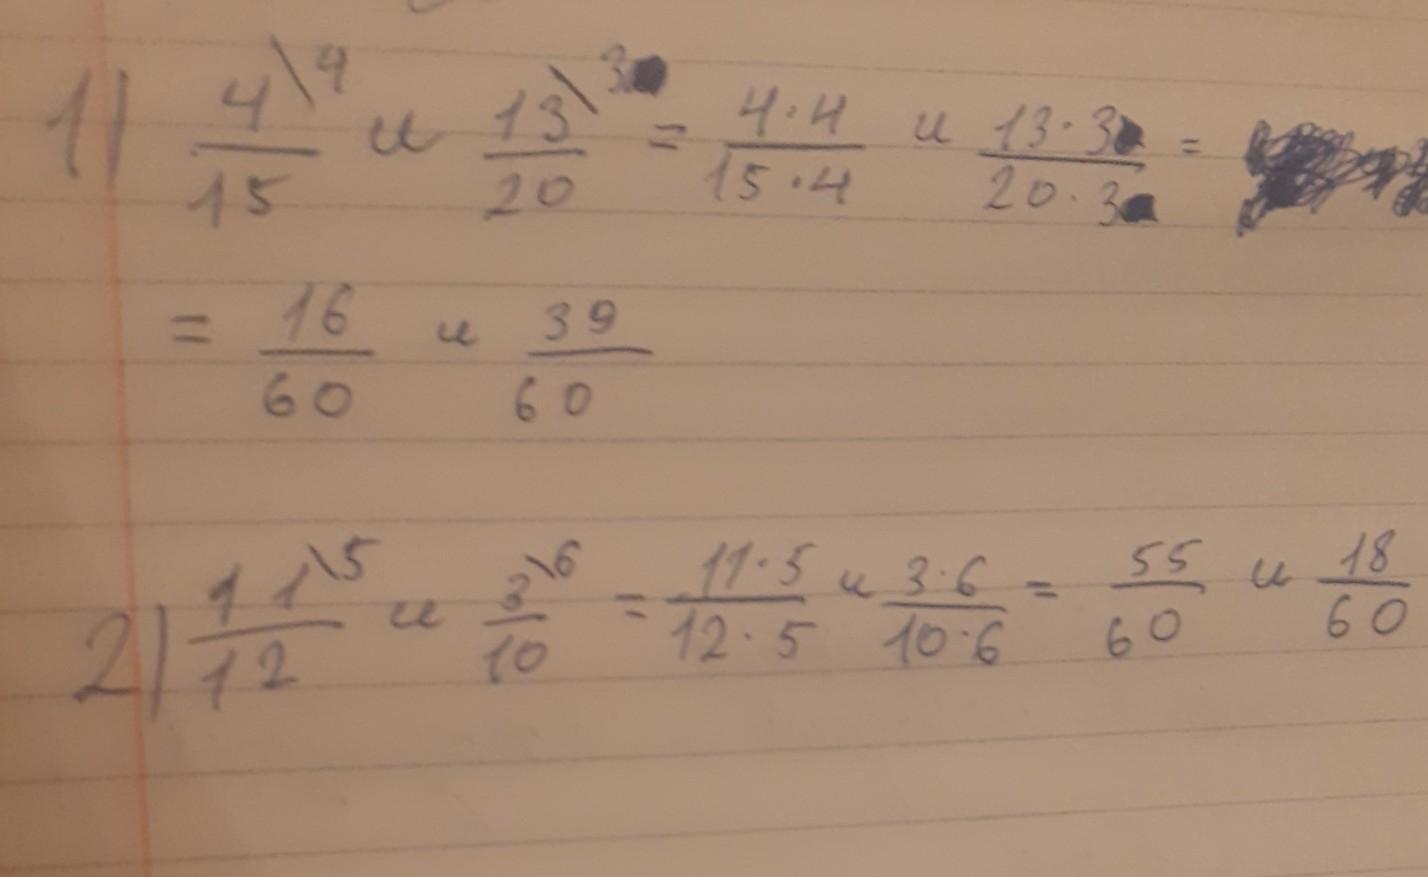 1) 4\4/15 и 13\3/20 = 4·4/15·4 и 13·3/20·3 =
= 16/60 и 39/60
2) 11\5/12 и 3\6/10 = 11·5/12·5 и 3·6/10·6 = 55/60 и 18/60